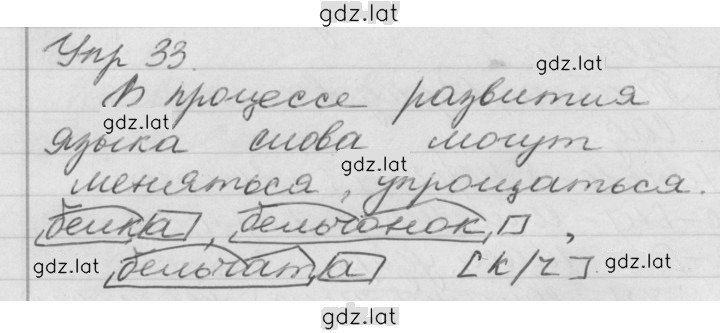 gdz.lat
Упр 33.
gdz.lat
В процессе развития
gdz.lat
языка слова могут
gdz.lat
меняться, упрощаться.
белка, бельчонок,
gdz.lat бельчата [к/ч] gdz.lat
gdz.lat